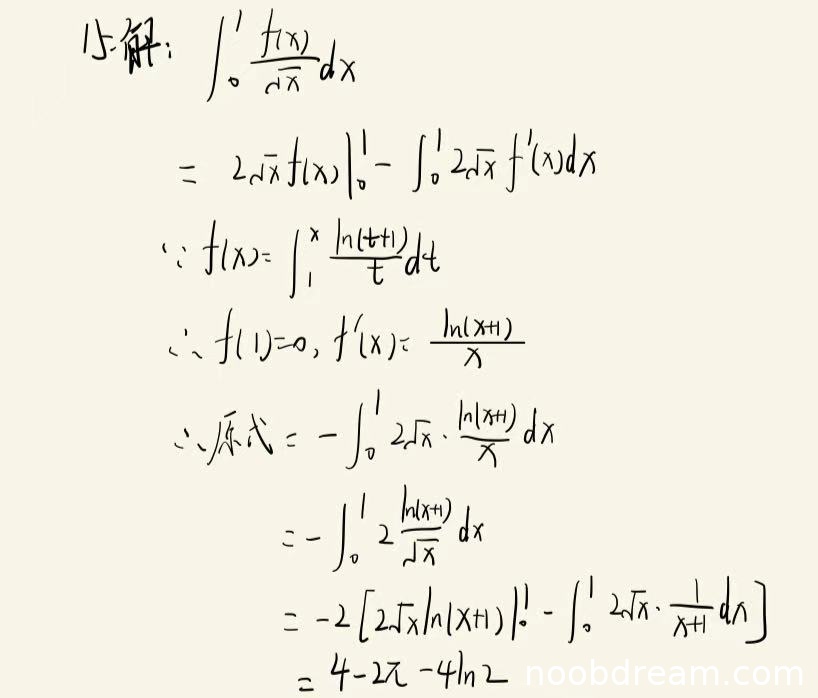 15.解: ∫₀¹ f(x)/√x dx
= 2√x f(x)|₀¹ - ∫₀¹ 2√x f'(x)dx
∵ f(x)= ∫₁ˣ ln(t+1)/t dt
∴ f(1)=0, f'(x)= ln(x+1)/x
∴原式 = -∫₀¹ 2√x · ln(x+1)/x dx
= -∫₀¹ 2 ln(x+1)/√x dx
= -2[2√x ln(x+1)|₀¹ - ∫₀¹ 2√x · 1/(x+1) dx]
= 4-2π-4ln2
noobdream.com